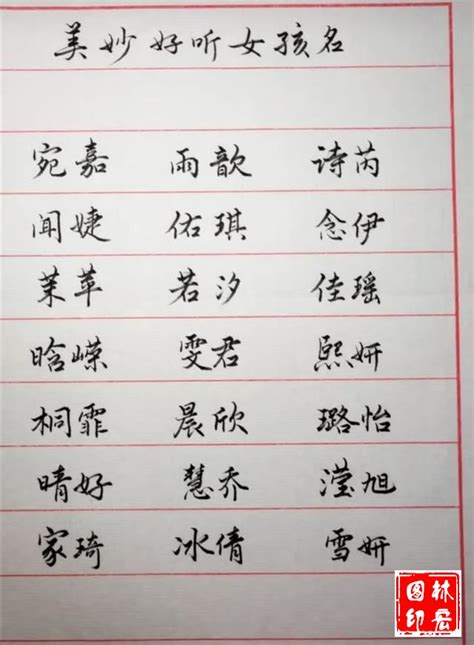 美妙好听女孩名
宛嘉 雨歆 诗芮
闻婕 佑琪 念伊
茉苹 若汐 佳瑶
晗嵘 雯君 熙妍
桐霏 晨欣 璐怡
晴好 慧乔 滢旭
家琦 冰倩 雪妍